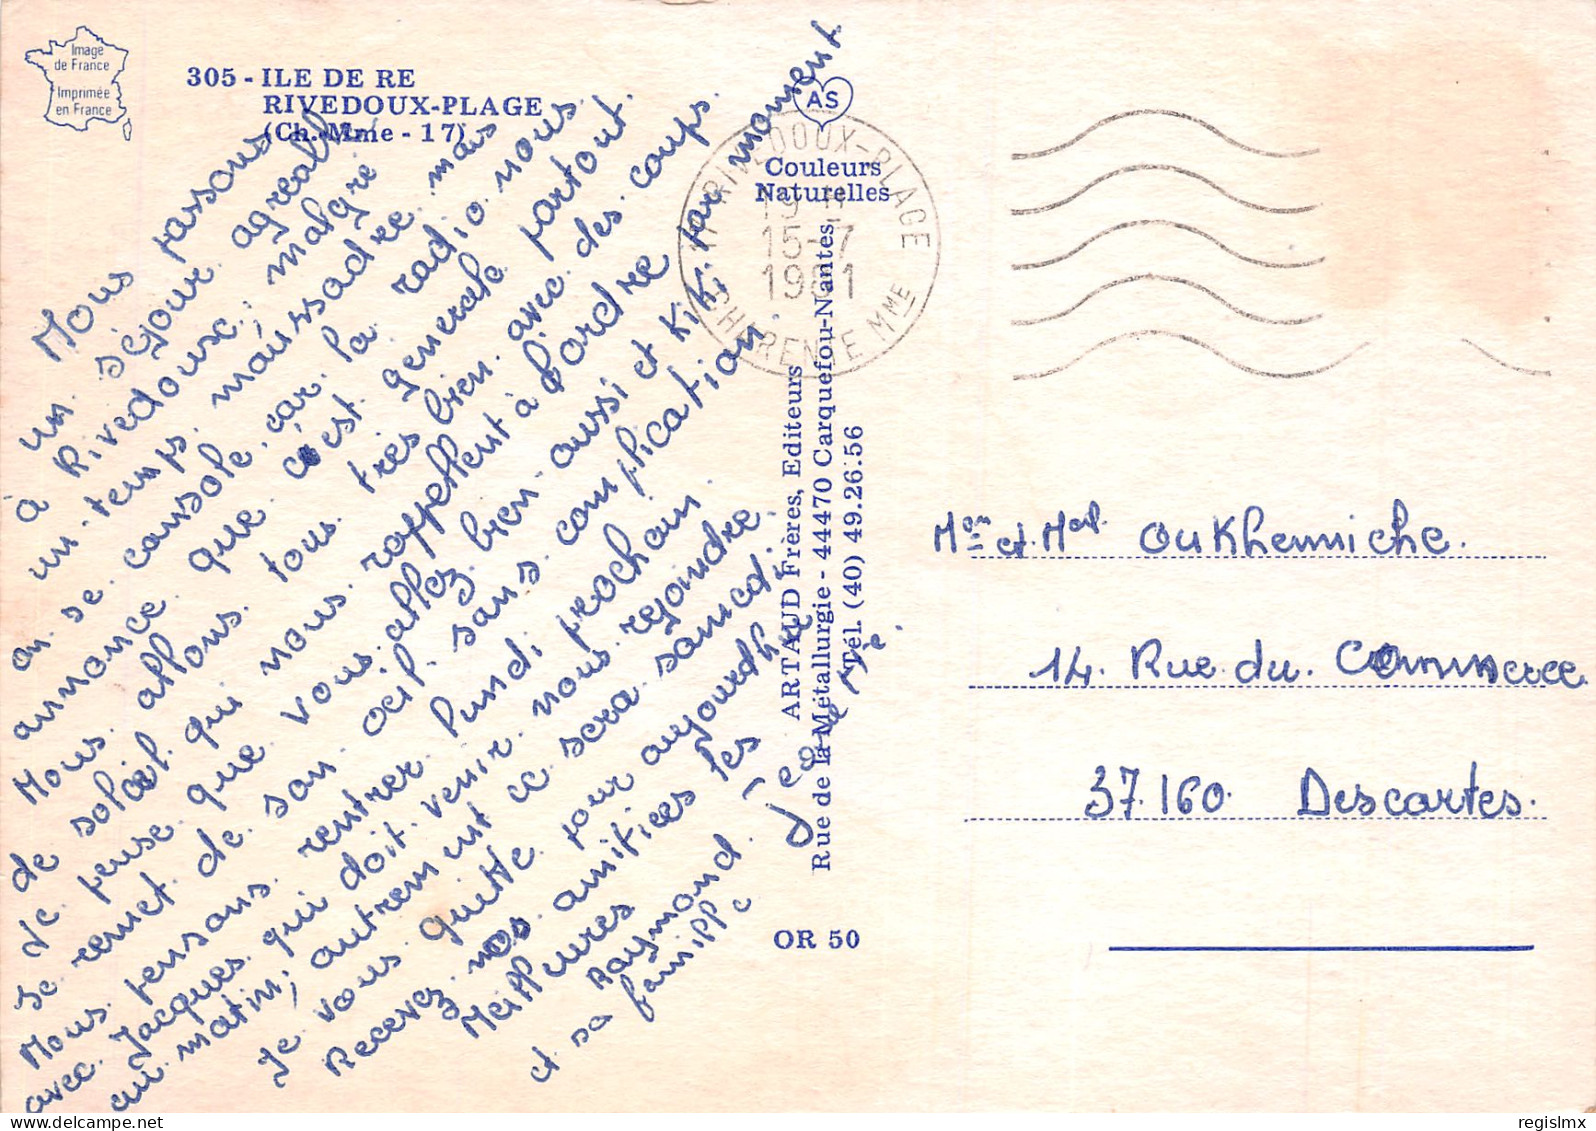 Image
de France
Imprimée
en France
305 - ILE DE RE
RIVEDOUX-PLAGE
(Ch.-Mme - 17)
AS
Couleurs
Naturelles
17 RIVEDOUX-PLAGE
15-7
1981
CHARENTE MME
Nous passons
un séjour agreable
à Rivedouse; malgré
un temps maussadre mais
on se console car la radio nous
annonce que c'est generale partout.
Nous allons tous très bien avec des coups
de soleil qui nous rappellent à l'ordre par moment
Je pense que vous allez bien aussi et Kiki
se remet de son oeil sans complication.
Nous pensons rentrer lundi prochain
avec Jacques qui doit venir nous rejoindre
au matin; autrement ce sera samedi.
Je vous quitte pour aujourdhui
Recevez nos amitiées les
Meilleures
Raymond Jeanne Mie.
et sa famille
ARTAUD Frères, Editeurs
Rue de la Métallurgie - 44470 Carquefou-Nantes
Tél. (40) 49.26.56
OR 50
et OuKhenniche.
14. Rue du Commerce
37.160. Descartes.
regislmx